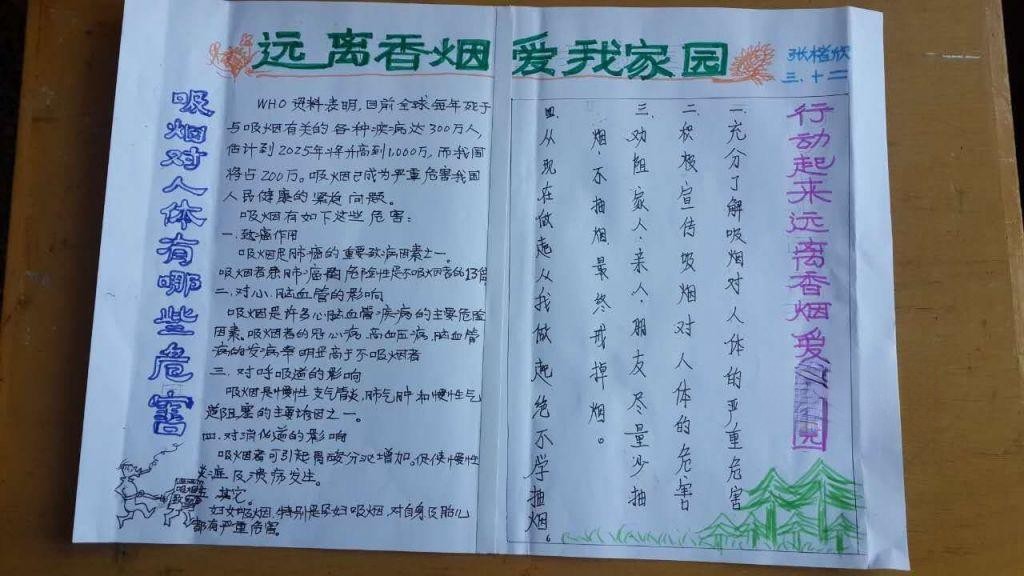 远离香烟 爱我家园
张楷欣
三、十二
吸烟对人体有哪些危害
WHO资料表明,目前全球每年死于
与吸烟有关的各种疾病达300万人,
估计到2025年将升高到1,000万,而我国
将占200万。吸烟已成为严重危害我国
人民健康的紧迫问题。
吸烟有如下这些危害:
一.致癌作用
吸烟是肺癌的重要致病因素之一。
吸烟者患肺癌的危险性是不吸烟者的13倍
二.对心、脑血管的影响
吸烟是许多心脑血管疾病的主要危险
因素,吸烟者的冠心病,高血压病,脑血管
病的发病率明显高于不吸烟者
三.对呼吸道的影响
吸烟是慢性支气管炎,肺气肿和慢性气
道阻塞的主要诱因之一。
四.对消化道的影响
吸烟者可引起胃酸分泌增加。促使慢性
炎症及溃疡发生。
五.其它。
妇女吸烟,特别是孕妇吸烟,对自身及胎儿
都有严重危害。
行动起来远离香烟爱园
一.充分了解吸烟对人体的严重危害
二.积极宣传吸烟对人体的危害
三.劝阻家人.亲人.朋友尽量少抽
烟.不抽烟最终戒掉烟。
四.从现在做起从我做起绝不学抽烟。